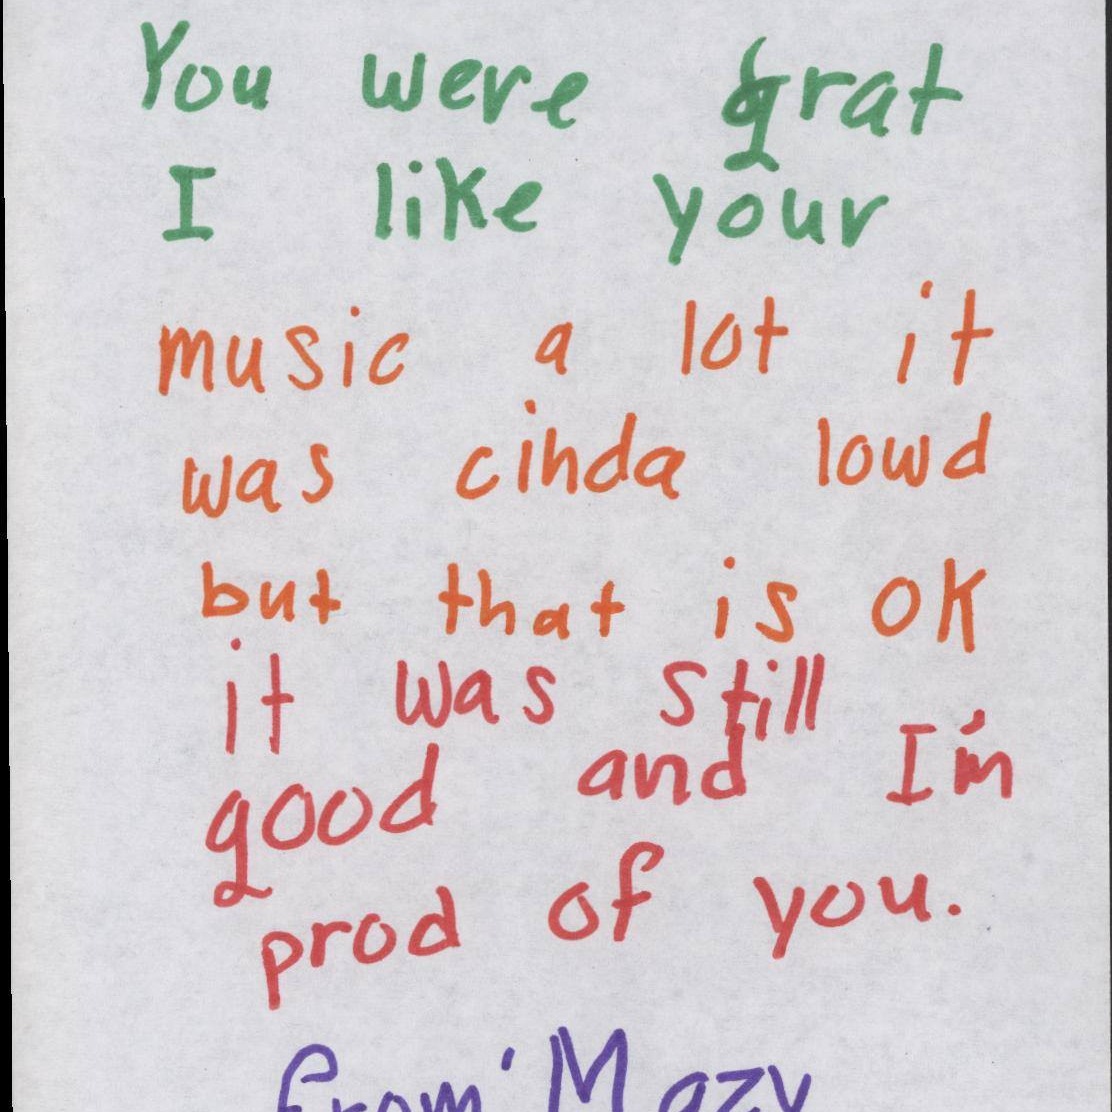 You were grat
I like your
music a lot it
was cinda lowd
but that is OK
it was still
good and I'm
prod of you.
from Mazy